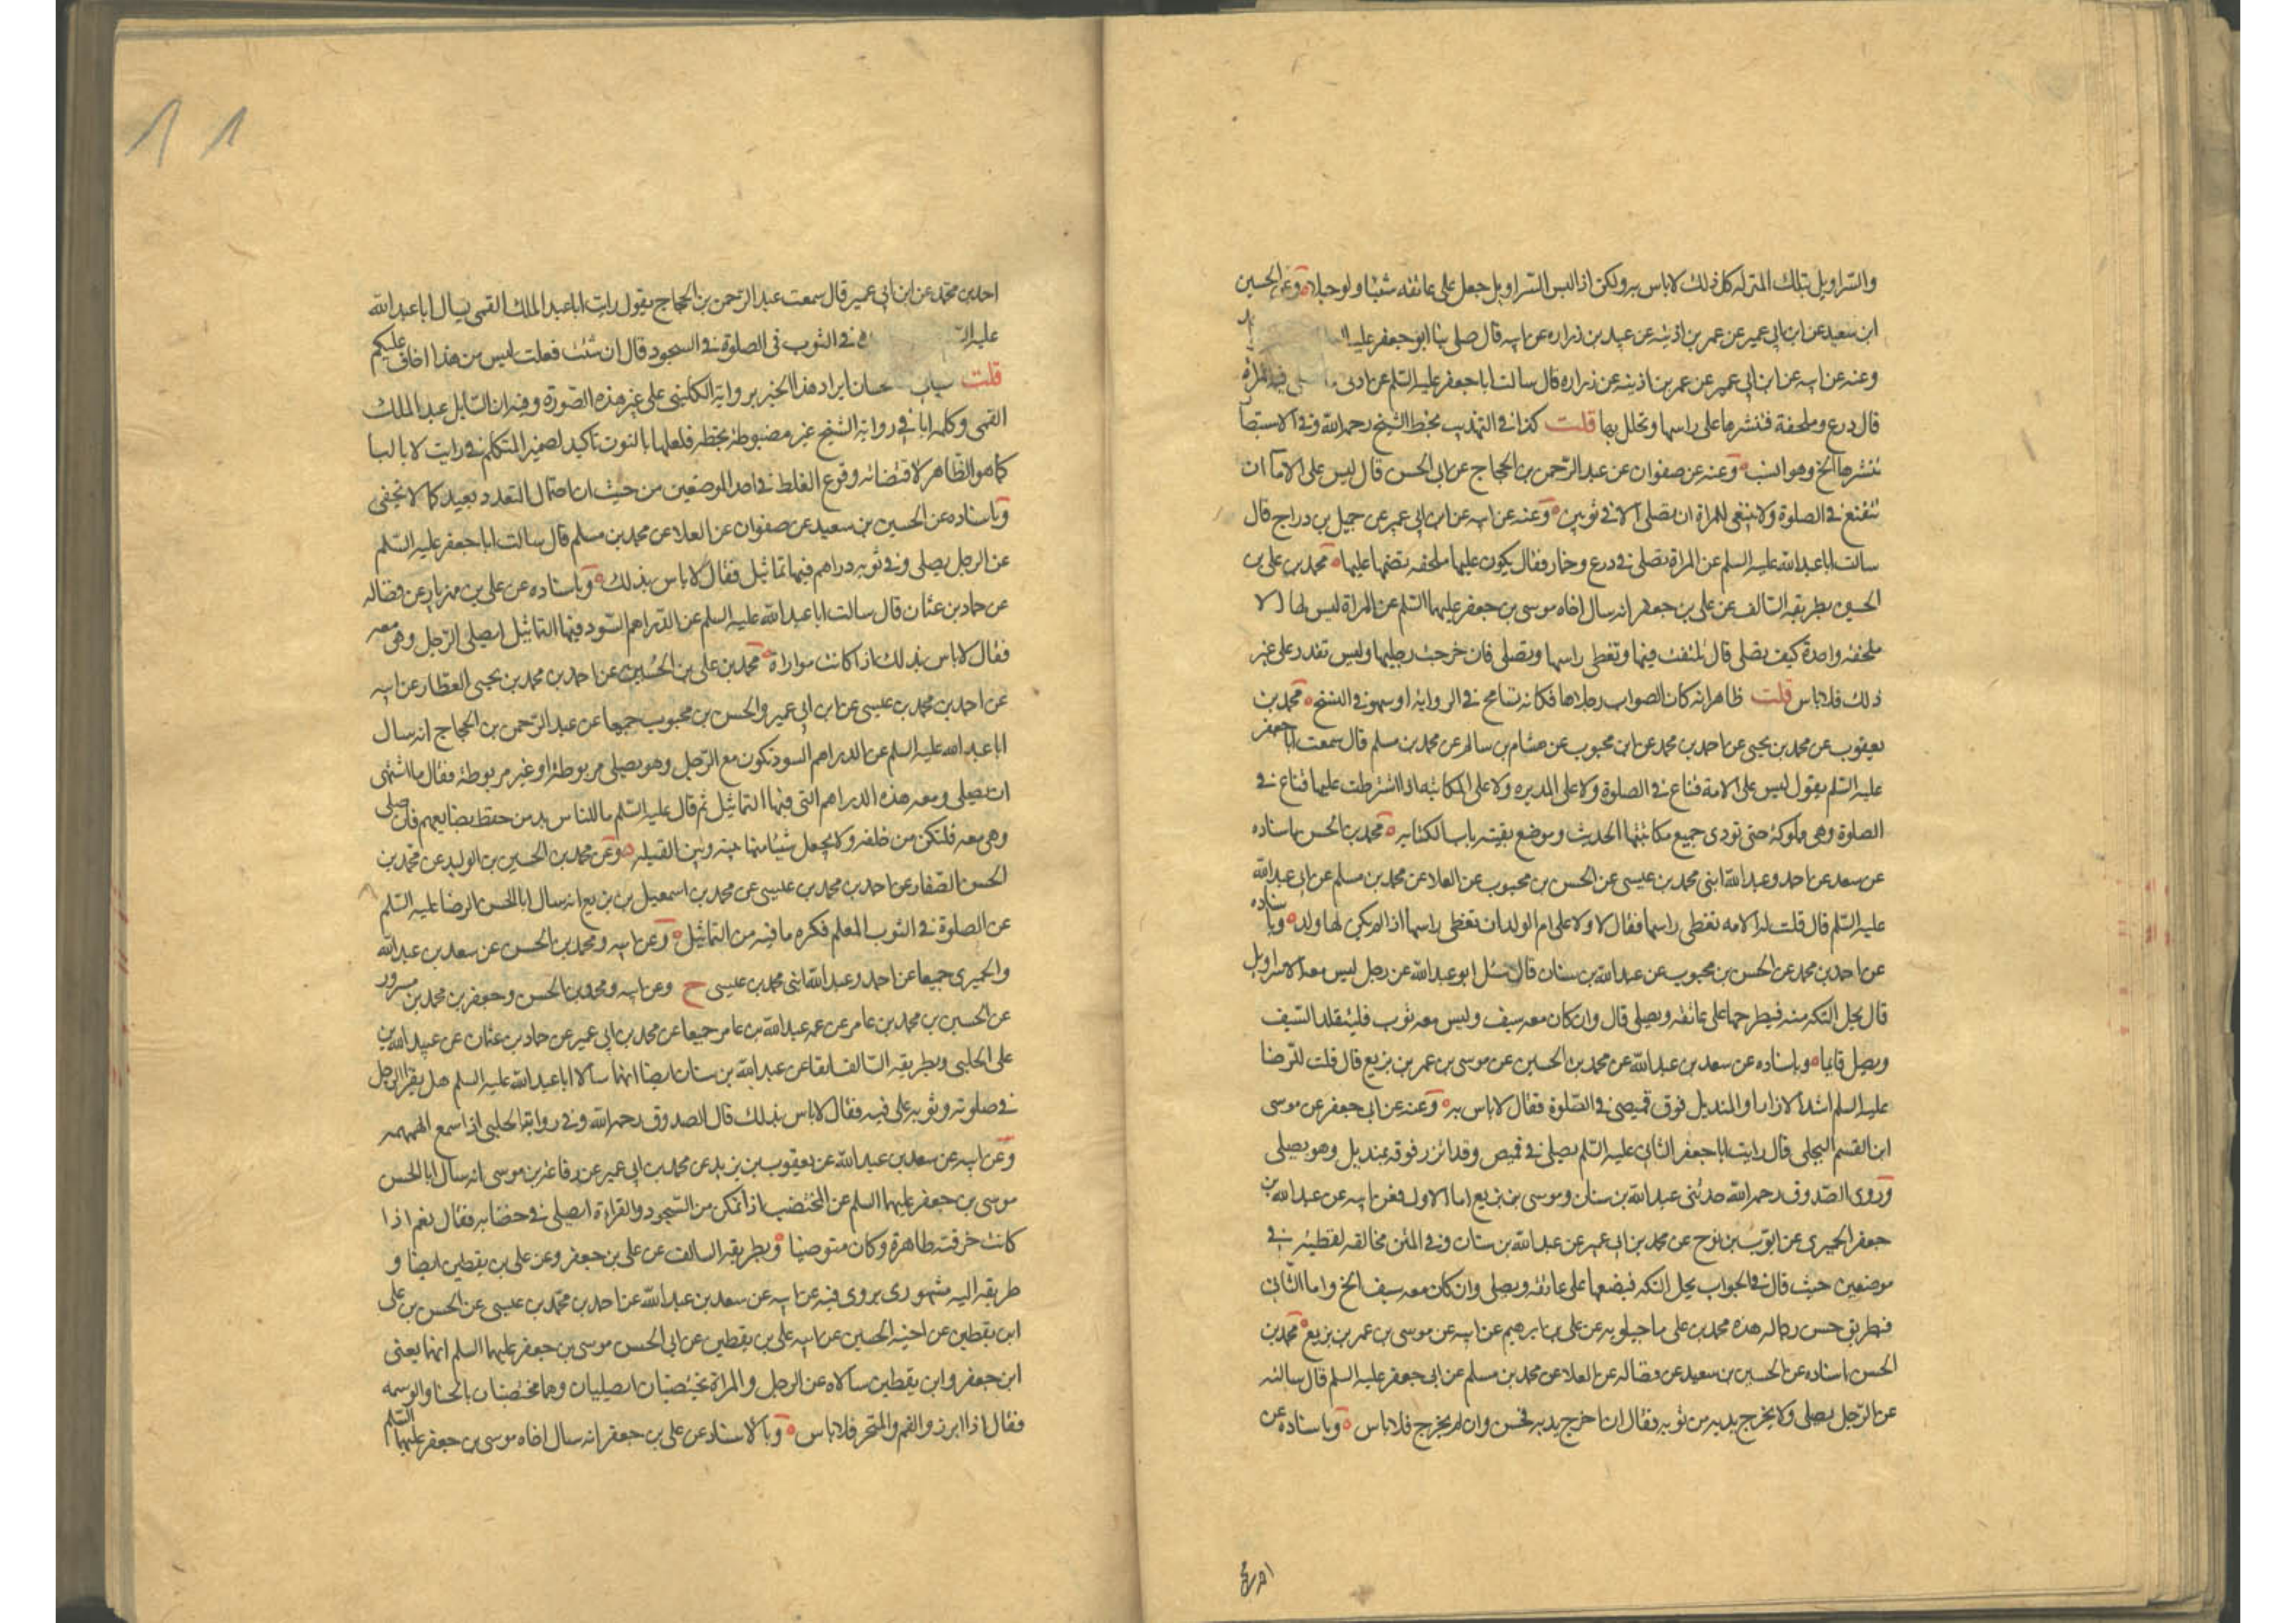 والسراويل بتلك المنزلة كل ذلك لا باس به ولكن اذا لبس السراويل جعل على عاتقه شيئا ولو حبلا وعن الحسين
ابن سعيد عن ابن ابي عمير عن عمر بن اذينه عن عبيد بن زراره عن ابيه قال صلى بنا ابو جعفر عليه
وعنه عن ابيه عن ابن ابي عمير عن عمر بن اذينه عن زراره قال سالت ابا جعفر عليه السلم عن ادنى ما تصلى فيه المراة
قال درع وملحفة فتنشرها على راسها وتجلل بها قلت كذا في التهذيب بخط الشيخ رحمه الله وفي الاستبصا
تنشرها الخ وهو انسب وعنه عن صفوان عن عبد الرحمن بن الحجاج عن ابي الحسن قال ليس على الاماء ان
تتقنع في الصلوة ولا ينبغي للمراة ان تصلى الا في ثوبين وعنه عن ابيه عن ابن ابي عمير عن جميل بن دراج قال
سالت ابا عبد الله عليه السلم عن المراة تصلى في درع وخمار فقال يكون عليها ملحفه تضمها عليها محمد بن علي بن
الحسين بطريقه السالف عن علي بن جعفر انه سال اخاه موسى بن جعفر عليهما السلم عن المراة ليس لها الا
ملحفة واحدة كيف تصلى قال تلتف فيها وتغطى راسها وتصلى فان خرجت رجليها وليس تقدر على غير
ذلك فلا باس قلت ظاهر انه كان الصواب رجلاها فكانه تسامح في الرواية او سهو في النسخ محمد بن
يعقوب عن محمد بن يحيى عن احمد بن محمد عن ابن محبوب عن هشام بن سالم عن محمد بن مسلم قال سمعت ابا جعفر
عليه السلم يقول ليس على الامة قناع في الصلوة ولا على المدبره ولا على المكاتبه اذا اشترطت عليها قناع في
الصلوة وهي مملوكة حتى تودى جميع مكاتبتها الحديث وموضع بقيته باب الكتابه محمد بن الحسن باسناده
عن سعد عن احمد وعبد الله ابنى محمد بن عيسى عن الحسن بن محبوب عن العلا عن محمد بن مسلم عن ابي عبد الله
عليه السلم قال قلت له الامه تغطى راسها فقال لا ولا على ام الولد ان تغطى راسها اذا لم يكن لها ولد وباسناده
عن احمد بن محمد عن الحسن بن محبوب عن عبد الله بن سنان قال سئل ابو عبد الله عن رجل ليس معه الا سراويل
قال يحل التكه منه فيطرحها على عاتقه ويصلى قال وان كان معه سيف وليس معه ثوب فليتقلد السيف
ويصل قايما وباسناده عن سعد بن عبد الله عن محمد بن الحسين عن موسى بن عمر بن بزيع قال قلت للرضا
عليه السلم اشد الازار او المنديل فوق قميصى في الصلوة فقال لا باس به وعنه عن ابي جعفر عن موسى
ابن القسم البجلي قال رايت ابا جعفر الثاني عليه السلم يصلى في قميص وقد ائزر فوقه بمنديل وهو يصلى
وروى الصدوق رحمه الله حديثى عبد الله بن سنان وموسى بن بزيع اما الاول فعن ابيه عن عبد الله بن
جعفر الحميرى عن ايوب بن نوح عن محمد بن ابي عمير عن عبد الله بن سنان وفي المتن مخالفه لفظيه في
موضعين حيث قال في الجواب يحل التكه فيضعها على عاتقه ويصلى وان كان معه سيف الخ واما الثاني
فطريق حسن رجاله هذه محمد بن على ماجيلويه عن علي بن ابرهيم عن ابيه عن موسى بن عمر بن بزيع محمد بن
الحسن باسناده عن الحسين بن سعيد عن فضاله عن العلا عن محمد بن مسلم عن ابي جعفر عليه السلم قال سالته
عن الرجل يصلى ولا يخرج يديه من ثوبه فقال ان اخرج يديه فحسن وان لم يخرج فلا باس وباسناده عن
احمد بن محمد عن ابن ابي عمير قال سمعت عبد الرحمن بن الحجاج يقول رايت ابا عبد الملك القمى يسال ابا عبد الله
في الثوب فى الصلوة في السجود قال ان شئت فعلت ليس من هذا اخاف عليكم
قلت ايراد هذا الخبر برواية الكلينى على غير هذه الصورة وفيه ان السايل عبد الملك
القمى وكلمة ابا في رواية الشيخ غير مضبوطة بخطه فلعلها بالنون تاكيد لضمير المتكلم في رايت لا بالبا
كما هو الظاهر لاقتضائه وقوع الغلط في احد الموضعين من حيث ان احتمال التعدد بعيد كما لا يخفى
وباسناده عن الحسين بن سعيد عن صفوان عن العلا عن محمد بن مسلم قال سالت ابا جعفر عليه السلم
عن الرجل يصلى وفي ثوبه دراهم فيها تماثيل فقال لا باس بذلك وباسناده عن علي بن مهزيار عن فضاله
عن حماد بن عثمان قال سالت ابا عبد الله عليه السلم عن الدراهم السود فيها التماثيل ايصلى الرجل وهي معه
فقال لا باس بذلك اذا كانت مواراة محمد بن على بن الحسين عن احمد بن محمد بن يحيى العطار عن ابيه
عن احمد بن محمد بن عيسى عن ابن ابي عمير والحسن بن محبوب جميعا عن عبد الرحمن بن الحجاج انه سال
ابا عبد الله عليه السلم عن الدراهم السود تكون مع الرجل وهو يصلى مربوطة او غير مربوطة فقال ما اشتهى
ان يصلى ومعه هذه الدراهم التى فيها التماثيل ثم قال عليه السلم ما للناس بد من حفظ بضايعهم فان صلى
وهي معه فلتكن من خلفه ولا يجعل شيئا منها بينه وبين القبله وعن محمد بن الحسين بن الوليد عن محمد بن
الحسن الصفار عن احمد بن محمد بن عيسى عن محمد بن اسمعيل بن بزيع انه سال ابا الحسن الرضا عليه السلم
عن الصلوة في الثوب المعلم فكره ما فيه من التماثيل وعن ابيه ومحمد بن الحسن عن سعد بن عبد الله
والحميرى جميعا عن احمد وعبد الله ابنى محمد بن عيسى ح وعن ابيه ومحمد بن الحسن وجعفر بن محمد بن مسرور
عن الحسين بن محمد بن عامر عن عمه عبد الله بن عامر جميعا عن محمد بن ابي عمير عن حماد بن عثمان عن عبيد الله بن
على الحلبى وبطريقه السالف انفا عن عبد الله بن سنان ايضا انهما سالا ابا عبد الله عليه السلم هل يقرا الرجل
في صلوته وثوبه على فيه فقال لا باس بذلك قال الصدوق رحمه الله وفي رواية الحلبى اذا سمع الهمهمه
وعن ابيه عن سعد بن عبد الله عن يعقوب بن يزيد عن محمد بن ابي عمير عن رفاعة بن موسى انه سال ابا الحسن
موسى بن جعفر عليهما السلم عن المختضب اذا تمكن من السجود والقراءة ايصلى في خضابه فقال نعم اذا
كانت خرقته طاهرة وكان متوضيا وبطريقه السالف عن علي بن جعفر وعن علي بن يقطين ايضا و
طريقه اليه مشهورى يروى فيه عن ابيه عن سعد بن عبد الله عن احمد بن محمد بن عيسى عن الحسن بن على
ابن يقطين عن اخيه الحسين عن ابيه علي بن يقطين عن ابي الحسن موسى بن جعفر عليهما السلم انهما يعنى
ابن جعفر وابن يقطين سالاه عن الرجل والمراة يختضبان ايصليان وهما مختضبان بالحنا والوسمه
فقال اذا ابرزوا الفم والمنخر فلا باس وبالاسناد عن علي بن جعفر انه سال اخاه موسى بن جعفر عليهما السلم